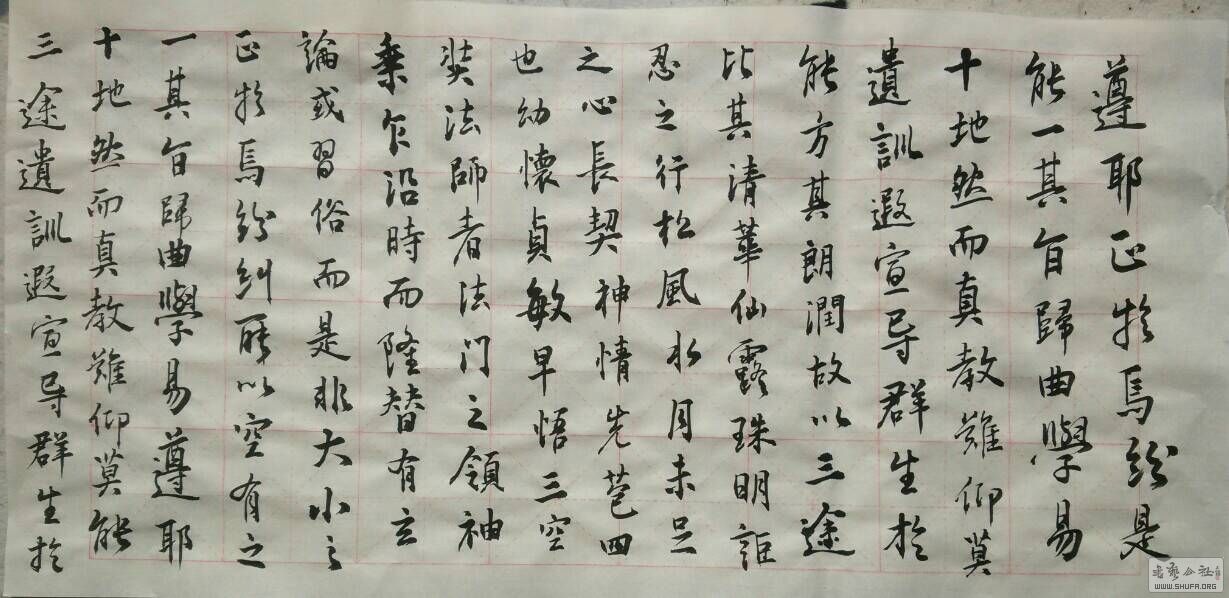 三途遺訓遐宣导群生於
十地然而真教難仰莫能
一其旨歸曲學易遵耶
正於焉紛糾所以空有之
論或習俗而是非大小之
乘乍沿時而隆替有玄
奘法師者法門之領袖
也幼懷貞敏早悟三空
之心長契神情先苞四
忍之行松風水月未足
比其清華仙露珠明詎
能方其朗潤故以三途
遺訓遐宣导群生於
十地然而真教難仰莫
能一其旨歸曲學易
遵耶正於焉紛是
WWW.SHUFA.ORG